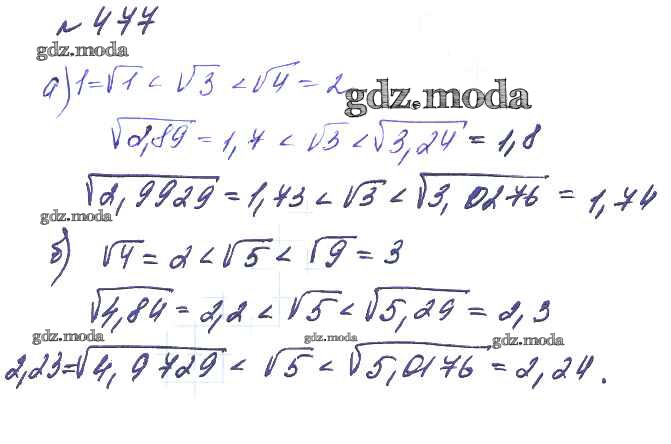 № 477
gdz.moda
а) 1=√1 < √3 < √4 = 2
gdz.moda
√2,89 = 1,7 < √3 < √3,24 = 1,8
√2,9929 = 1,73 < √3 < √3,0276 = 1,74
gdz.moda
б) √4 = 2 < √5 < √9 = 3
√4,84 = 2,2 < √5 < √5,29 = 2,3
gdz.moda gdz.moda gdz.moda
2,23=√4,9729 < √5 < √5,0176 = 2,24.